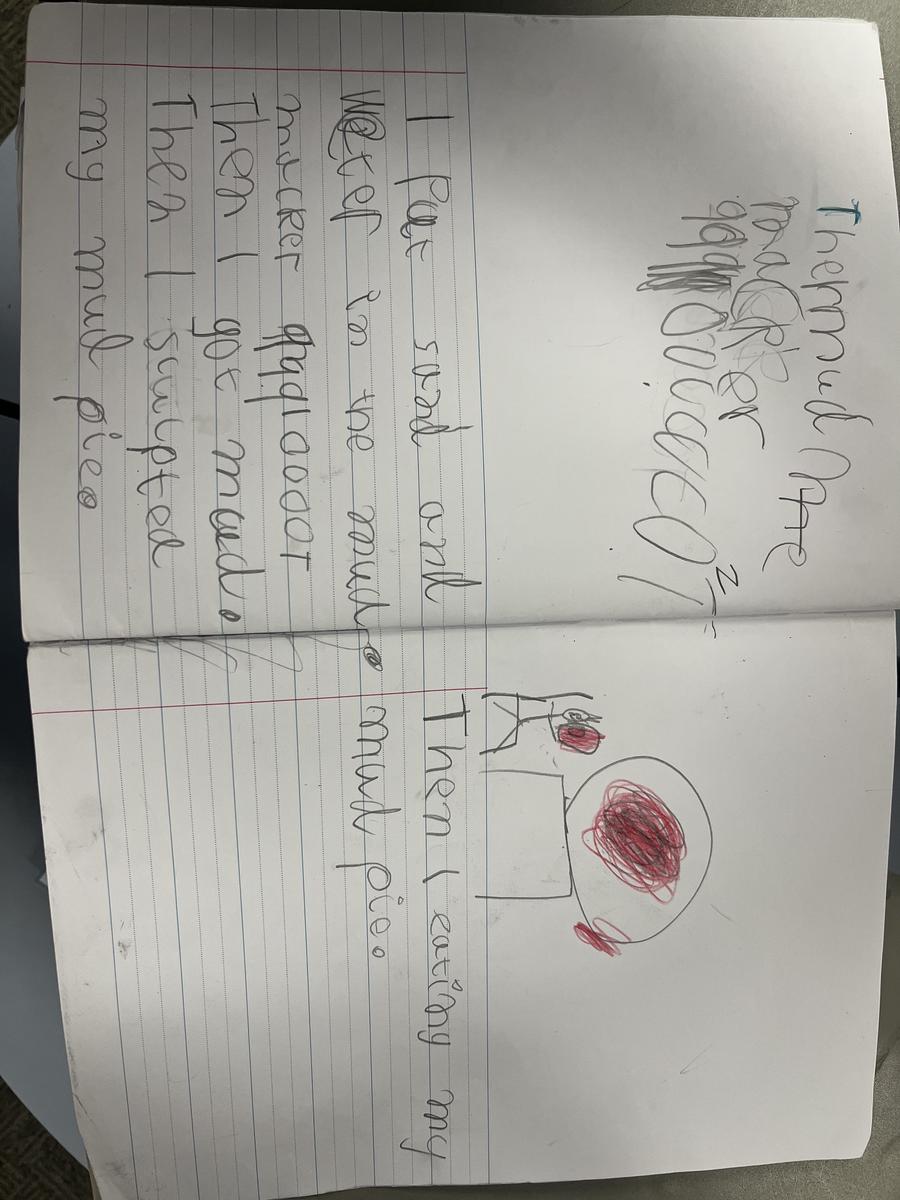 The mud Pie
macker
I Put sand and
Water in the mud
macker qqqloooot
Then I got mud.
Then I sculpted
my mud pie.
Then I eating my
mud pie.